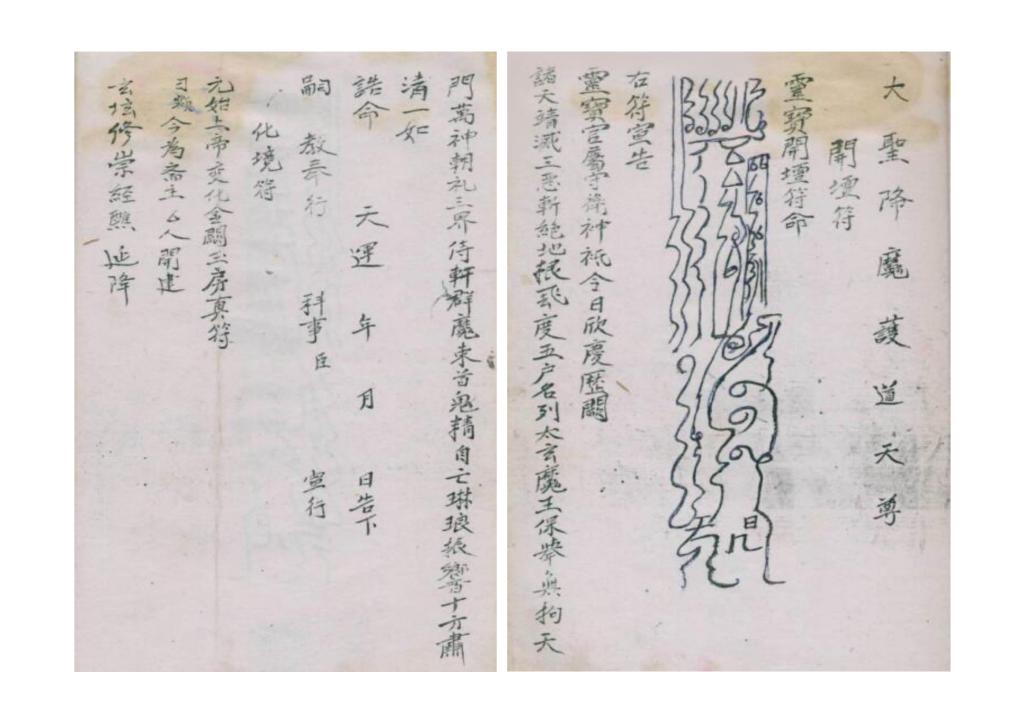 大聖降魔護道天尊
開壇符
靈寶開壇符命
右符宣告
靈寶官屬守衛神祇今日欣慶歷關
諸天靖滅三惡斬絕地根飛度五户名列太玄魔王保舉無拘天
門萬神朝礼三界侍軒群魔束首鬼精自亡琳琅振響十方肅
清一如
誥命 天運 年 月 日告下
嗣 教奉行 科事臣 宣行
化境符
元始上帝变化金闕玉房真符
今為齋主厶人開建
修崇經醮 延降